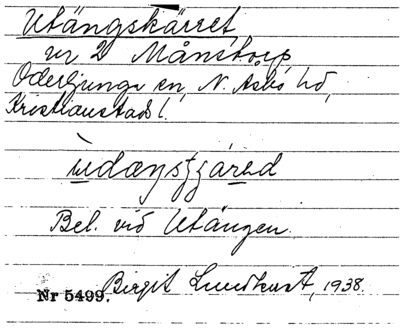 Utängskärret
ur 2 Månstorp
Oderljunga sn, N. Åsbo hd,
Kristianstads l.
Bel. vid Utängen.
Birgit Lundkvist, 1938.
Nr 5499.